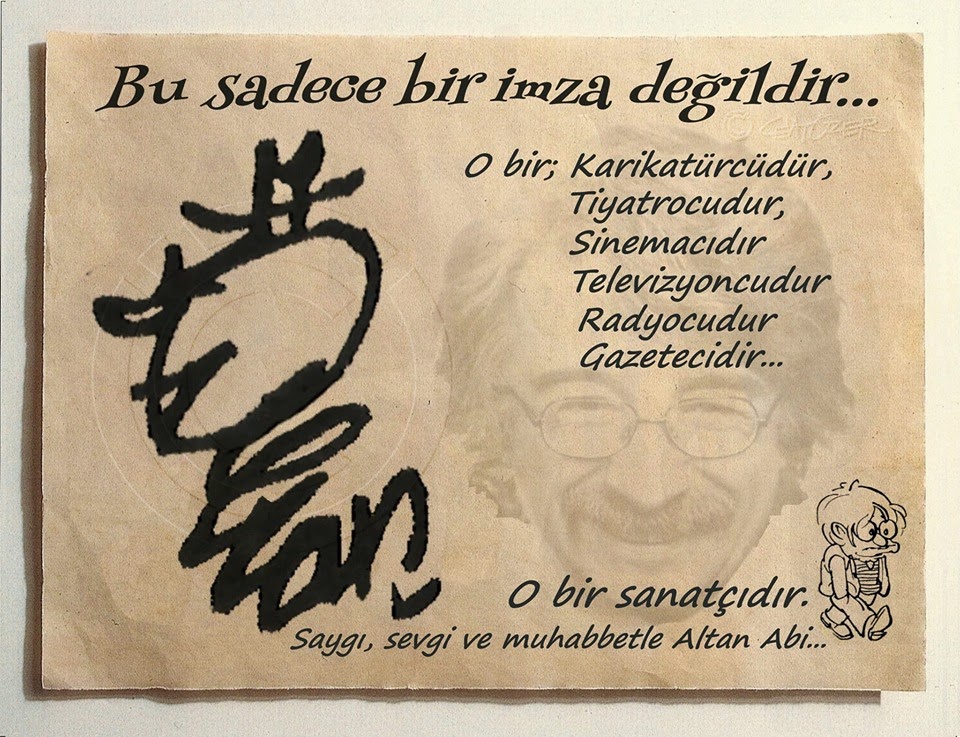 Bu sadece bir imza değildir...
O bir; Karikatürcüdür,
Tiyatrocudur,
Sinemacıdır
Televizyoncudur
Radyocudur
Gazetecidir...
O bir sanatçıdır.
Saygı, sevgi ve muhabbetle Altan Abi...